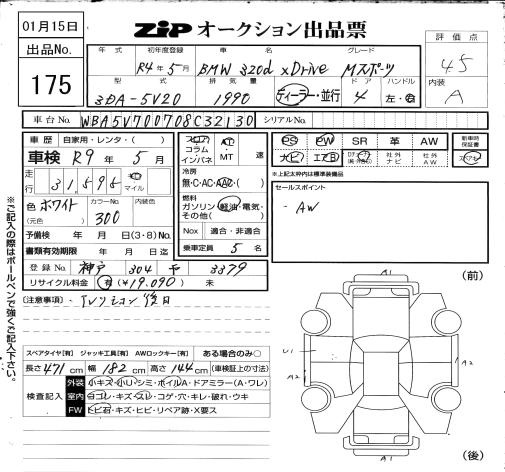 01月15日
出品No.
175
ZiP オークション出品票
評価点
4.5
内装
A
年式 初年度登録 車名 グレード
R4年5月 BMW 320d xDrive Mスポーツ
型式 排気量 ドア ハンドル
3DA-5V20 1990 ディーラー・並行 4 左・右
車台No. WBA5V700708C32130 シリアルNo.
車歴 自家用・レンタ・( )
車検 R9年5月
走行 31,598 マイル
色 ホワイト カラーNo. 300 内装色
(元色)
予備検 年 月 日(3・8)No.
書類有効期限 年 月 日迄
登録No. 神戸 304 3379
リサイクル料金 有 ¥19,090 未
フロア コラム インパネ
AT MT 速
冷房
無・C・AC・AAC・( )
燃料
ガソリン・軽油・電気・
その他( )
Nox 適合・非適合
乗車定員 5 名
PS PW SR 革 AW
ナビ エアB 社外ナビ 社外AW
新車時保証書
※上記太枠内は標準装備品
セールスポイント
・AW
(注意事項)・
スペアタイヤ[有] ジャッキ工具[有] AWロックキー[有] ある場合のみ○
長さ 471 cm 幅 182 cm 高さ 144 cm (車検証上の寸法)
検査記入
外装 小キズ・小U・シミ・ホイルA・ドアミラー(A・ワレ)
室内 ヨゴレ・キズ・スレ・コゲ・穴・キレ・破れ・ウキ
FW トビ石・キズ・ヒビ・リペア跡・X要ス
※ご記入の際はボールペンで強くご記入下さい。
(前)
A1
U1
A2
A2
A1
(後)